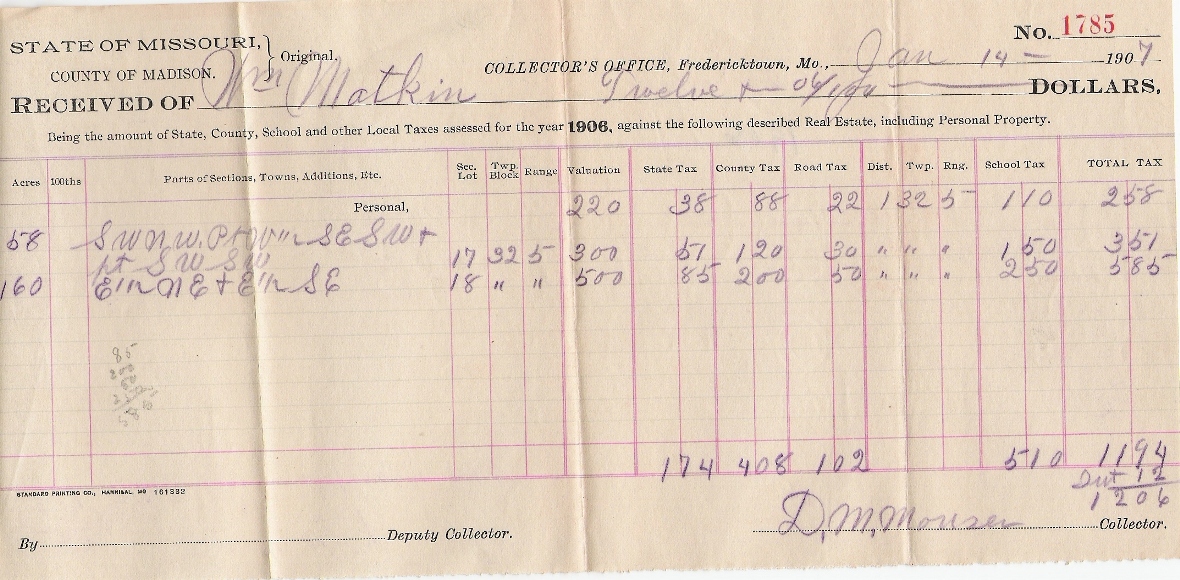 No. 1785
STATE OF MISSOURI, } Original.
COUNTY OF MADISON.
COLLECTOR'S OFFICE, Fredericktown, Mo., Jan 14 - 1907
RECEIVED OF Wm Matkin Twelve + 06/100 DOLLARS,
Being the amount of State, County, School and other Local Taxes assessed for the year 1906, against the following described Real Estate, including Personal Property.
Acres 100ths Parts of Sections, Towns, Additions, Etc. Sec. Lot Twp. Block Range Valuation State Tax County Tax Road Tax Dist. Twp. Rng. School Tax TOTAL TAX
Personal, 220 38 88 22 1 32 5 110 258
58 SW NW. Pt W½ SE SW +
pt SW SW 17 32 5 300 51 120 30 " " " 150 351
160 E½ NE + E½ SE 18 " " 500 85 200 50 " " " 250 585
85
174 408 102 510 1194
12
1206
STANDARD PRINTING CO., HANNIBAL, MO 161332
D, M, Mouser Collector.
By Deputy Collector.